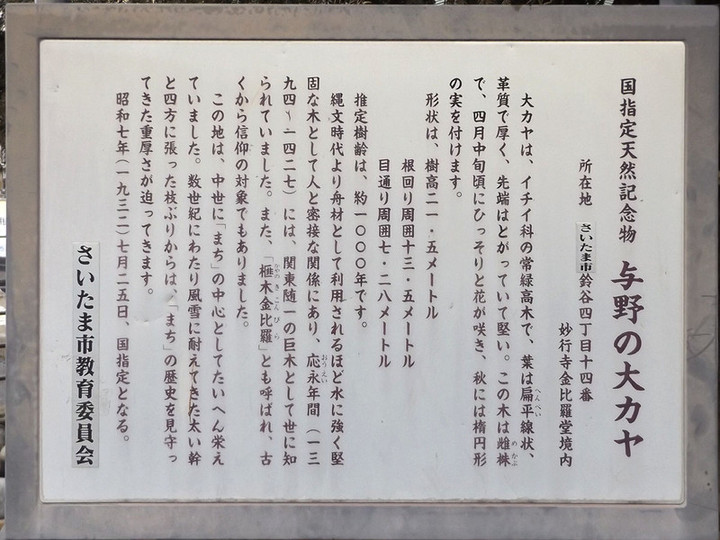 国指定天然記念物 与野の大カヤ
所在地 さいたま市鈴谷四丁目十四番
妙行寺金比羅堂境内
大カヤは、イチイ科の常緑高木で、葉は扁平線状、
革質で厚く、先端はとがっていて堅い。この木は雌株
で、四月中旬頃にひっそりと花が咲き、秋には楕円形
の実を付けます。
形状は、樹高二一・五メートル
根回り周囲十三・五メートル
目通り周囲七・二八メートル
推定樹齢は、約一〇〇〇年です。
縄文時代より舟材として利用されるほど水に強く堅
固な木として人と密接な関係にあり、応永年間（一三
九四～一四二七）には、関東随一の巨木として世に知
られていました。また、「榧木金比羅」とも呼ばれ、古
くから信仰の対象でもありました。
この地は、中世に「まち」の中心としてたいへん栄え
ていました。数世紀にわたり風雪に耐えてきた太い幹
と四方に張った枝ぶりからは、「まち」の歴史を見守っ
てきた重厚さが迫ってきます。
昭和七年（一九三二）七月二五日、国指定となる。
さいたま市教育委員会